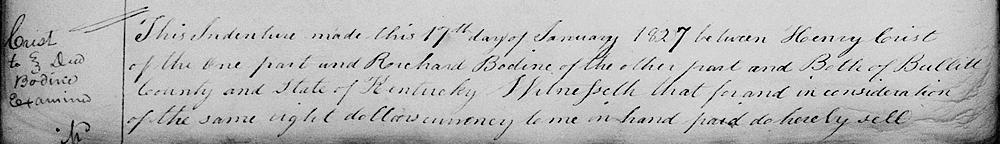 Crist
to } Deed
Bodine
Examined
This Indenture made this 17th day of January 1827 between Henry Crist
of the One part and Rorchard Bodine of the other part and Both of Bullitt
County and State of Kentucky Witnesseth that for and in consideration
of the same eight dollars currency to me in hand paid do hereby sell